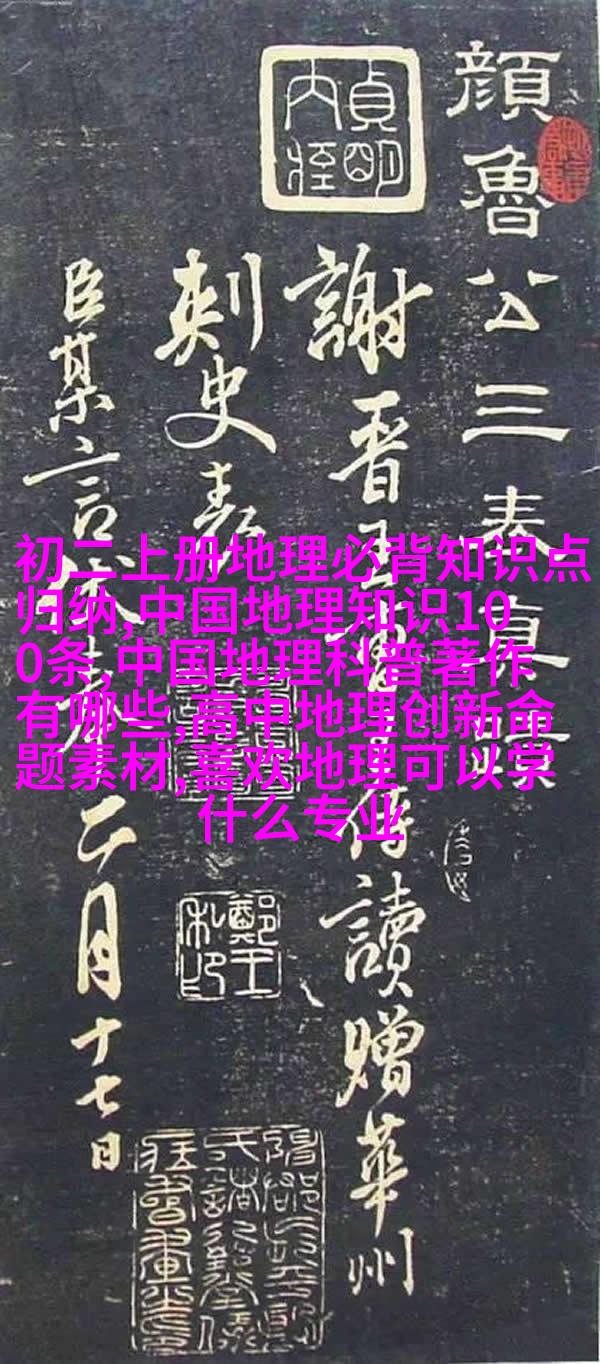 顏魯公三表真
謝晉王曾侍讀贈華州
刺史表
臣某言伏奉二月十七日
初二上册地理必背知识点
归纳,中国地理知识10
0条,中国地理科普著作
有哪些,高中地理创新命
题素材,喜欢地理可以学
什么专业